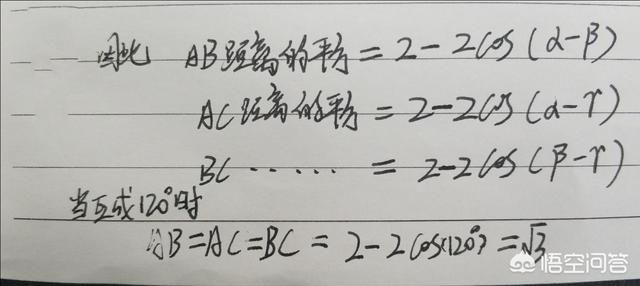 因此 AB距离的平方 = 2-2cos(α-β)
AC距离的平方 = 2-2cos(α-γ)
BC ······ = 2-2cos(β-γ)
当互成120°时
AB=AC=BC = 2-2cos(120°) = √3
悟空问答